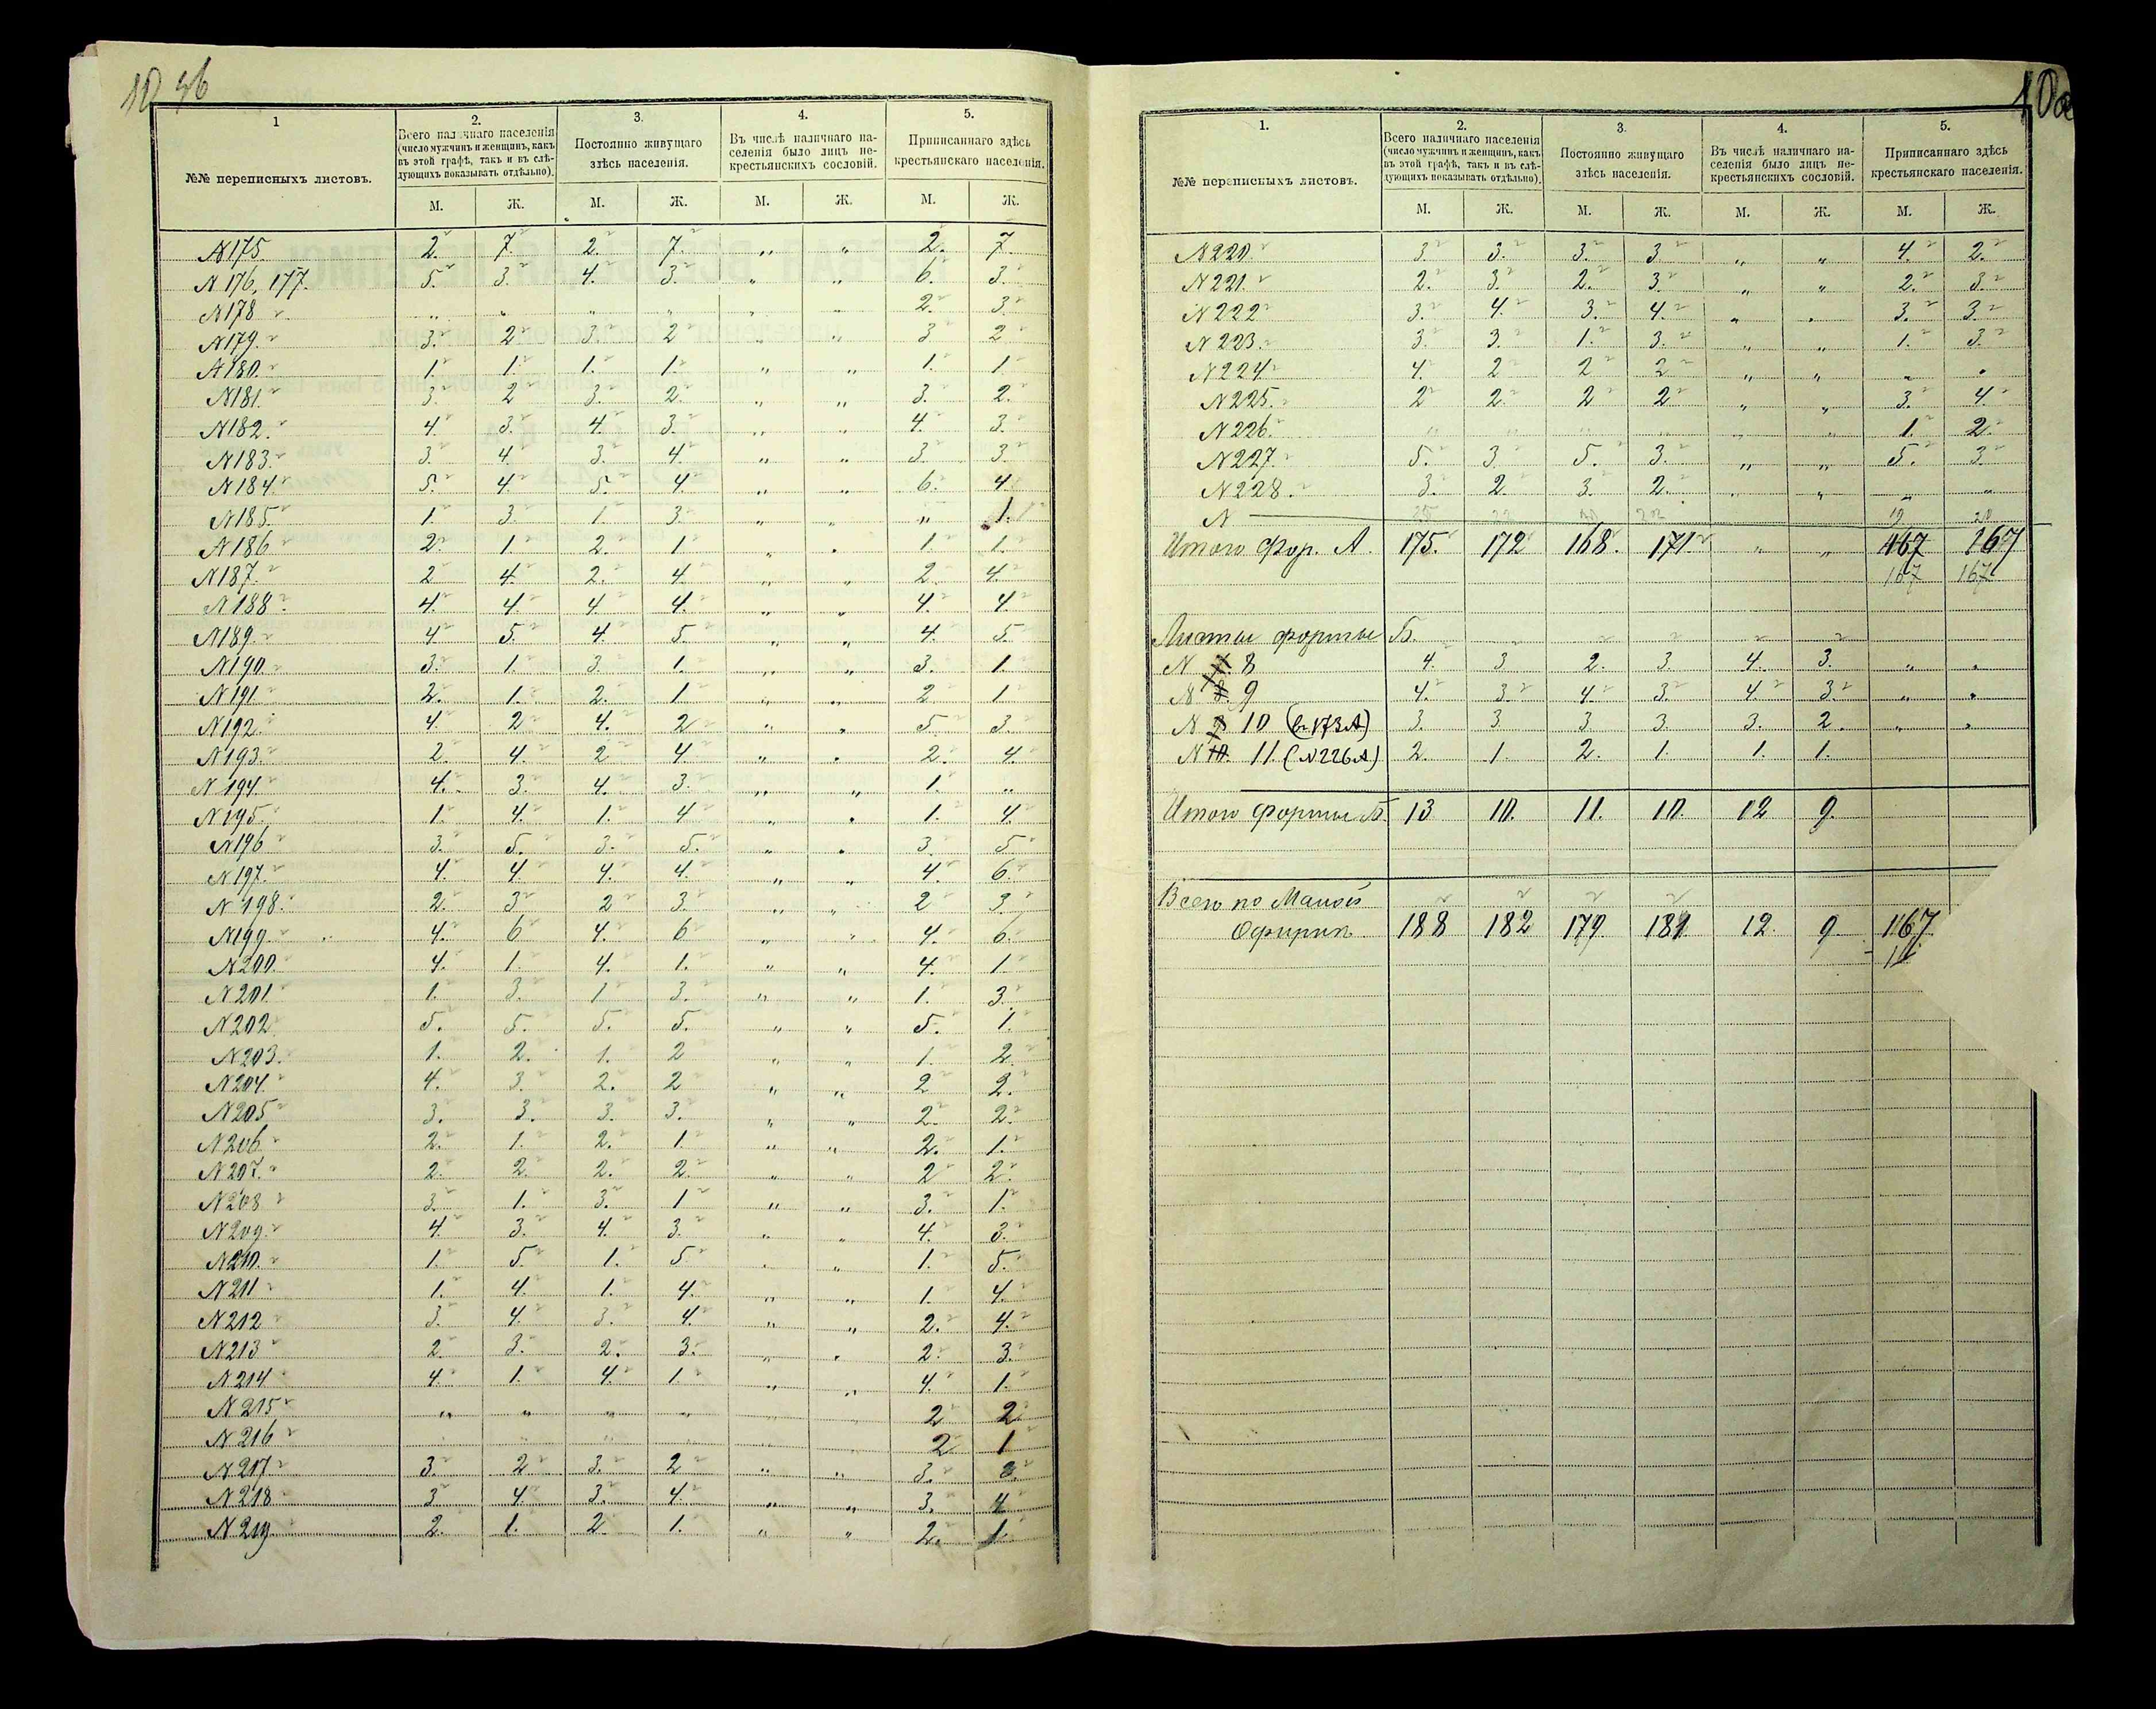 10 96
1 2. 3. 4. 5.
№№ переписныхъ листовъ.
Всего наличнаго населенія
(число мужчинъ и женщинъ, какъ
въ этой графѣ, такъ и въ слѣ-
дующихъ показывать отдѣльно).
Постоянно живущаго
здѣсь населенія.
Въ числѣ наличнаго на-
селенія было лицъ не-
крестьянскихъ сословій.
Приписаннаго здѣсь
крестьянскаго населенія.
М. Ж. М. Ж. М. Ж. М. Ж.
N175 2. 7 2. 7 „ „ 2. 7
N176, 177. 5. 3. 4. 3. „ „ 6. 3.
N178 „ „ „ „ „ „ 2. 3.
N179. 3. 2 3. 2 „ „ 3 2
N180. 1. 1. 1. 1. „ „ 1. 1
N181. 3. 2 3. 2. „ „ 3. 2.
N182. 4. 3. 4. 3. „ „ 4. 3.
N183. 3. 4. 3. 4. „ „ 3. 3.
N184. 5. 4. 5. 4. „ „ 6. 4.
N185. 1. 3. 1. 3. „ „ „ 1.
N186 2. 1 2. 1 „ „ 1. 1.
N187. 2 4. 2. 4. „ „ 2. 4.
N188. 4. 4 4 4. „ „ 4. 4.
N189. 4 5. 4. 5. „ „ 4. 5.
N190. 3. 1. 3. 1. „ „ 3. 1.
N191. 2. 1. 2. 1. „ „ 2 1
N192. 4. 2 4. 2 „ „ 5. 3.
N193. 2. 4. 2 4 „ „ 2. 4.
N194. 4. 3. 4. 3. „ „ 1. „
N195. 1. 4. 1. 4 „ „ 1. 4.
N196 3. 5. 3. 5. „ „ 3. 5
N197. 4. 4 4. 4. „ „ 4. 6.
N198. 2. 3 2 3. „ „ 2 3.
N199. 4. 6 4. 6 „ „ 4. 6.
N200. 4. 1. 4. 1. „ „ 4. 1.
N201. 1. 3. 1 3. „ „ 1. 3.
N202 5. 5. 5. 5. „ „ 5. 1.
N203. 1. 2. 1. 2 „ „ 1. 2.
N204. 4. 3. 2. 2 „ „ 2 2.
N205 3. 3. 3. 3. „ „ 2. 2.
N206 2. 1. 2. 1. „ „ 2. 1.
N207. 2. 2. 2. 2. „ „ 2 2
N208 3. 1. 3. 1 „ „ 3. 1.
N209. 4. 3. 4. 3. „ „ 4. 3.
N210. 1. 5. 1. 5 „ „ 1. 5.
N211 1. 4. 1. 4. „ „ 1. 4.
N212 3. 4. 3. 4. „ „ 2. 4.
N213 2. 3. 2. 3. „ „ 2. 3.
N214 4. 1. 4. 1 „ „ 4. 1.
N215 „ „ „ „ „ „ 2 2
N216 „ „ „ „ „ „ 2 1
N217 3. 2 3. 2 „ „ 3.
N218 3 4. 3. 4. „ „ 3. 4
N219. 2. 1. 2. 1. „ „ 2. 1.
1. 2. 3. 4. 5.
№№ переписныхъ листовъ.
Всего наличнаго населенія
(число мужчинъ и женщинъ, какъ
въ этой графѣ, такъ и въ слѣ-
дующихъ показывать отдѣльно).
Постоянно живущаго
здѣсь населенія.
Въ числѣ наличнаго на-
селенія было лицъ не-
крестьянскихъ сословій.
Приписаннаго здѣсь
крестьянскаго населенія.
М. Ж. М. Ж. М. Ж. М. Ж.
N220. 3 3. 3. 3 „ „ 4. 2.
N221. 2. 3. 2. 3. „ „ 2. 3.
N222 3. 4. 3. 4. „ „ 3. 3.
N223. 3. 3. 1. 3. „ „ 1. 3.
N224 4. 2 2 2 „ „ „ „
N225. 2 2. 2 2 „ „ 3. 4.
N226. „ „ „ „ „ „ 1. 2.
N227. 5. 3. 5. 3. „ „ 5. 3.
N228. 3. 2. 3. 2. „ „ „ „
N
Итого Фор. А. 175. 172 168. 171. „ „ 167 167
167 167
Листы формы Б.
N 8 4. 3 2. 3. 4. 3. „ „
N 9 4. 3. 4. 3. 4 3. „ „
N 10 3. 3 3 3. 3. 2. „ „
N 11. (N226А) 2. 1. 2. 1. 1. 1.
Итого формы Б. 13 10. 11. 10. 12 9.
Всего по Малой
188 182 179. 181. 12. 9. 167.